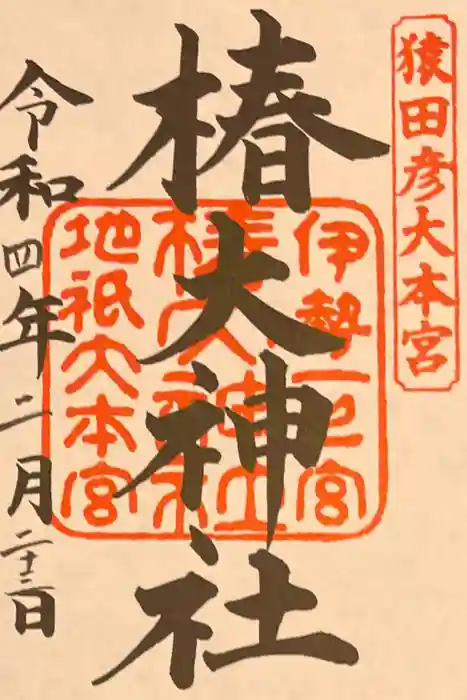 猿田彦大本宮
椿大神社
伊勢一宮
椿大神社
地祇大本宮
令和四年二月二十三日